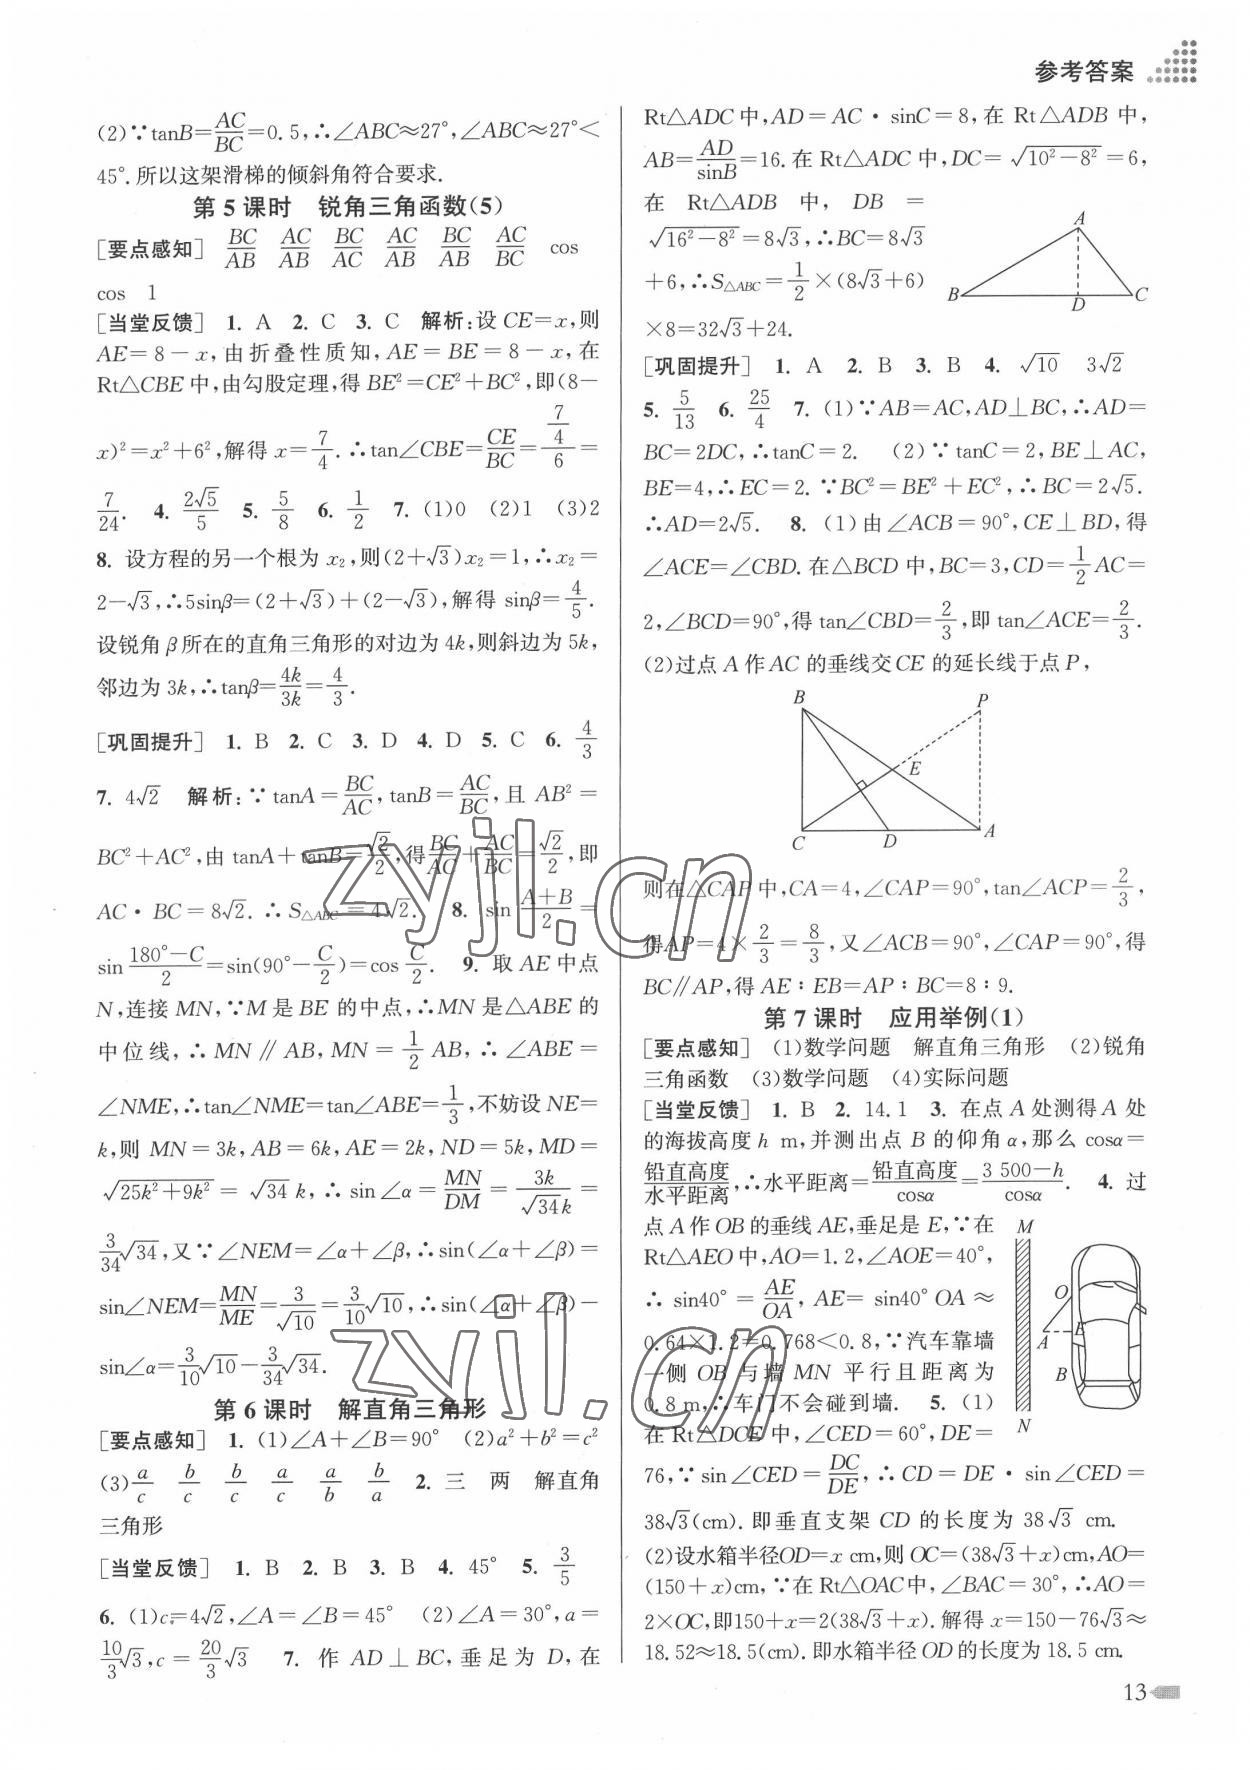 参考答案
(2)∵tanB=AC/BC=0.5,∴∠ABC≈27°,∠ABC≈27°<
45°.所以这架滑梯的倾斜角符合要求.
第 5 课时　锐角三角函数(5)
[要点感知]　BC/AB　AC/AB　BC/AC　AC/AB　BC/AB　AC/BC　cos
cos　1
[当堂反馈]　1. A　2. C　3. C　解析:设 CE=x,则
AE=8-x,由折叠性质知,AE=BE=8-x,在
Rt△CBE 中,由勾股定理,得 BE²=CE²+BC²,即(8-
x)²=x²+6²,解得 x=7/4.∴tan∠CBE=CE/BC=(7/4)/6=
7/24.　4. 2√5/5　5. 5/8　6. 1/2　7. (1)0　(2)1　(3)2
8. 设方程的另一个根为 x₂,则(2+√3)x₂=1,∴x₂=
2-√3,∴5sinβ=(2+√3)+(2-√3),解得 sinβ=4/5.
设锐角β所在的直角三角形的对边为 4k,则斜边为 5k,
邻边为 3k,∴tanβ=4k/3k=4/3.
[巩固提升]　1. B　2. C　3. D　4. D　5. C　6. 4/3
7. 4√2　解析:∵tanA=BC/AC,tanB=AC/BC,且 AB²=
BC²+AC²,由 tanA+tanB=√2/2,得BC/AC+AC/BC=√2/2,即
AC·BC=8√2.∴S△ABC=4√2.　8. sin (A+B)/2=
sin (180°-C)/2=sin(90°-C/2)=cos C/2.　9. 取 AE 中点
N,连接 MN,∵M 是 BE 的中点,∴MN 是△ABE 的
中位线,∴MN∥AB,MN=1/2 AB,∴∠ABE=
∠NME,∴tan∠NME=tan∠ABE=1/3,不妨设 NE=
k,则 MN=3k,AB=6k,AE=2k,ND=5k,MD=
√(25k²+9k²)=√34 k,∴sin∠α=MN/DM=3k/(√34k)=
3/34√34,又∵∠NEM=∠α+∠β,∴sin(∠α+∠β)=
sin∠NEM=MN/ME=3/√10=3/10√10,∴sin(∠α+∠β)-
sin∠α=3/10√10-3/34√34.
第 6 课时　解直角三角形
[要点感知]　1. (1)∠A+∠B=90°　(2)a²+b²=c²
(3)a/c　b/c　b/c　a/c　a/b　b/a　2. 三　两　解直角
三角形
[当堂反馈]　1. B　2. B　3. B　4. 45°　5. 3/5
6. (1)c=4√2,∠A=∠B=45°　(2)∠A=30°,a=
10/3√3,c=20/3√3　7. 作 AD⊥BC,垂足为 D,在
Rt△ADC 中,AD=AC·sinC=8,在 Rt△ADB 中,
AB=AD/sinB=16.在 Rt△ADC 中,DC=√(10²-8²)=6,
在 Rt△ADB 中, DB=
√(16²-8²)=8√3,∴BC=8√3
+6,∴S△ABC=1/2×(8√3+6)
×8=32√3+24.
A
B
D
C
[巩固提升]　1. A　2. B　3. B　4. √10　3√2
5. 5/13　6. 25/4　7. (1)∵AB=AC,AD⊥BC,∴AD=
BC=2DC,∴tanC=2.　(2)∵tanC=2,BE⊥AC,
BE=4,∴EC=2.∵BC²=BE²+EC²,∴BC=2√5.
∴AD=2√5.　8. (1)由∠ACB=90°,CE⊥BD,得
∠ACE=∠CBD.在△BCD 中,BC=3,CD=1/2 AC=
2,∠BCD=90°,得 tan∠CBD=2/3,即 tan∠ACE=2/3.
(2)过点 A 作 AC 的垂线交 CE 的延长线于点 P,
B
P
E
C
D
A
则在△CAP 中,CA=4,∠CAP=90°,tan∠ACP=2/3,
得AP=4×2/3=8/3,又∠ACB=90°,∠CAP=90°,得
BC∥AP,得 AE∶EB=AP∶BC=8∶9.
第 7 课时　应用举例(1)
[要点感知]　(1)数学问题　解直角三角形　(2)锐角
三角函数　(3)数学问题　(4)实际问题
[当堂反馈]　1. B　2. 14.1　3. 在点 A 处测得 A 处
的海拔高度 h m,并测出点 B 的仰角 α,那么 cosα=
铅直高度/水平距离,∴水平距离=铅直高度/cosα=(3 500-h)/cosα.　4. 过
点 A 作 OB 的垂线 AE,垂足是 E,∵在
Rt△AEO 中,AO=1.2,∠AOE=40°,
∴sin40°=AE/OA,AE=sin40° OA≈
0.64×1.2=0.768<0.8,∵汽车靠墙
一侧 OB 与墙 MN 平行且距离为
0.8 m,∴车门不会碰到墙.　5. (1)
M
O
A
E
B
N
在 Rt△DCE 中,∠CED=60°,DE=
76,∵sin∠CED=DC/DE,∴CD=DE·sin∠CED=
38√3(cm).即垂直支架 CD 的长度为 38√3 cm.
(2)设水箱半径OD=x cm,则 OC=(38√3+x)cm,AO=
(150+x)cm,∵在 Rt△OAC中,∠BAC=30°,∴AO=
2×OC,即150+x=2(38√3+x).解得 x=150-76√3≈
18.52≈18.5(cm).即水箱半径 OD的长度为 18.5 cm.
13
zyjl.cn
zyjl.cn